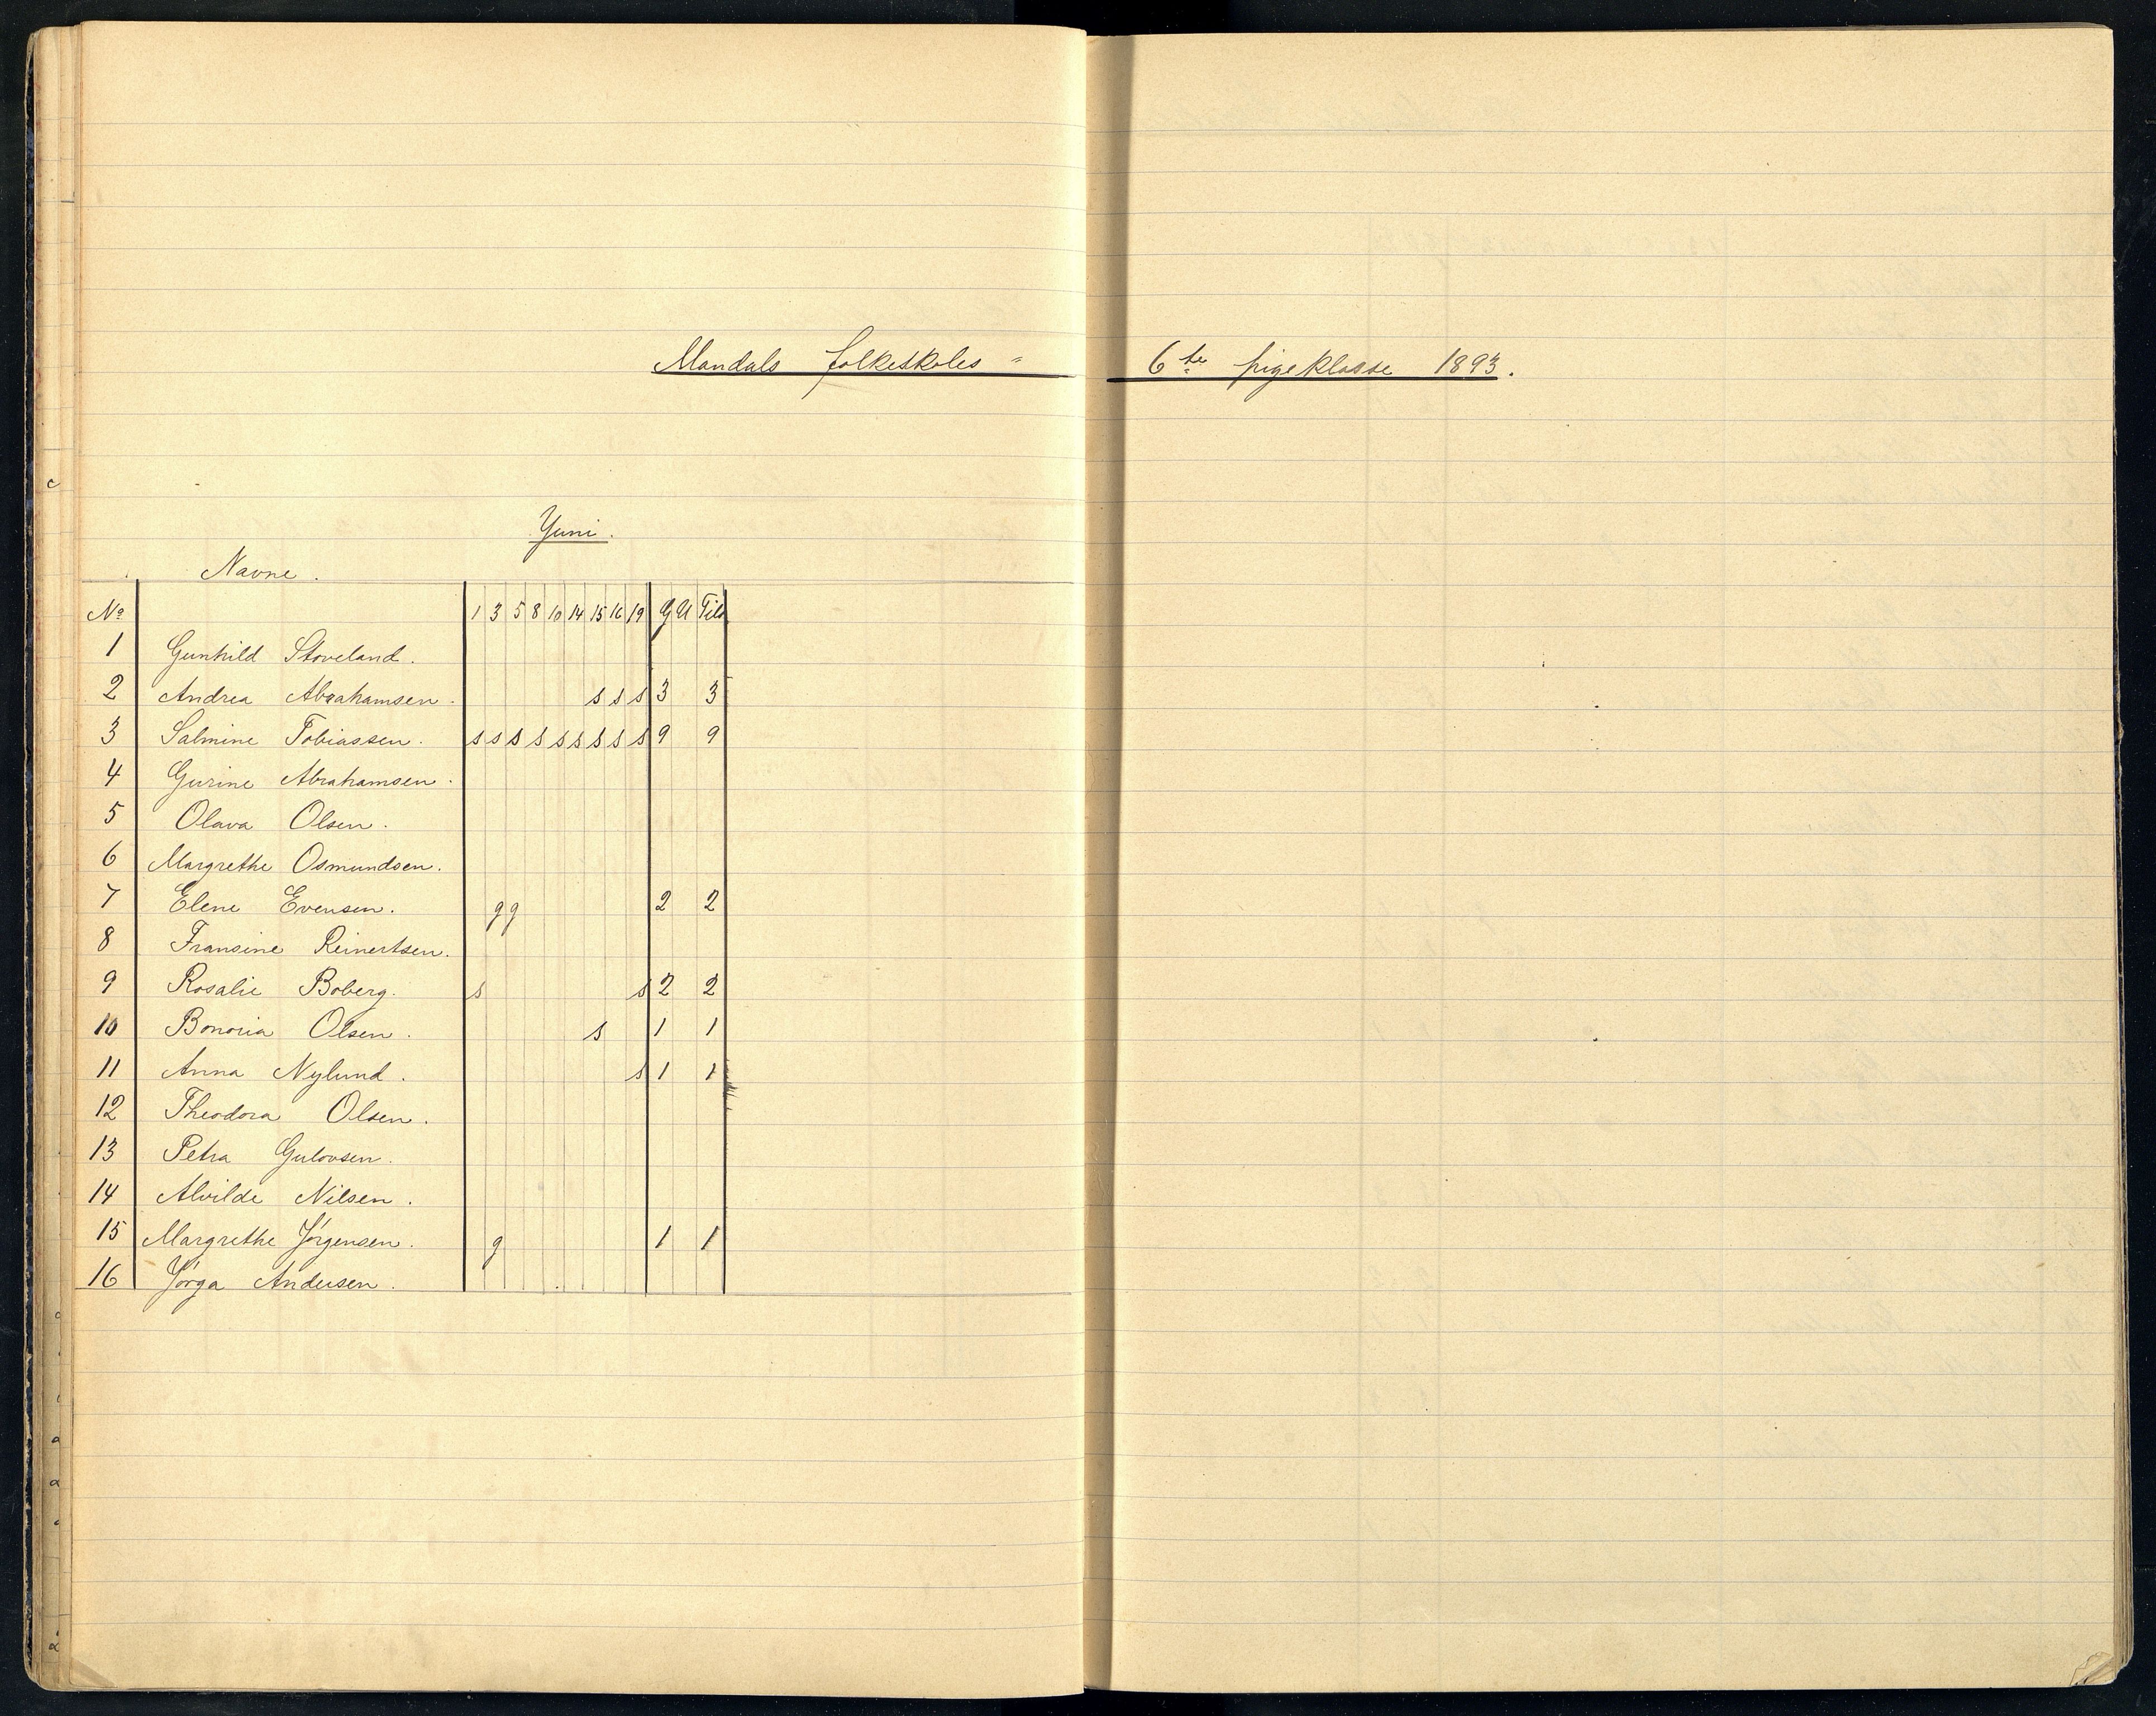 Mandals folkeskoles - 6te pigeklasse 1893.
Juni.
Navne.
No 1 3 5 8 10 14 15 16 19 G U Tils
1 Gunhild Stoveland.
2 Andrea Abrahamsen. s s s 3 3
3 Salmine Tobiassen. s s s s s s s s s 9 9
4 Gurine Abrahamsen.
5 Olava Olsen.
6 Margrethe Osmundsen.
7 Elene Evensen. g g 2 2
8 Fransine Reinertsen.
9 Rosalie Boberg. s s 2 2
10 Bonoria Olsen. s 1 1
11 Anna Nylund. s 1 1
12 Theodora Olsen.
13 Petra Gulovsen.
14 Alvilde Nilsen.
15 Margrethe Jörgensen. g 1 1
16 Jörga Andersen.